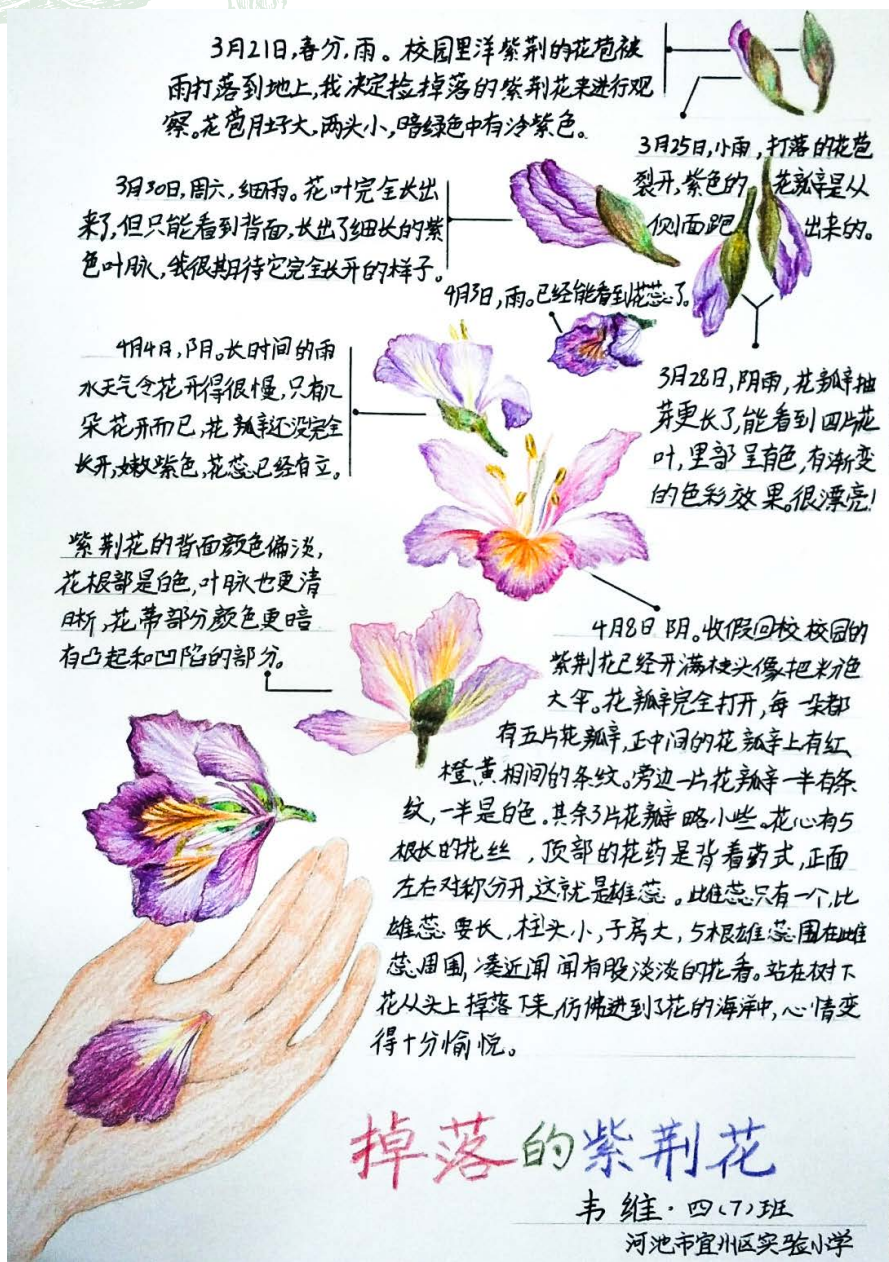 3月21日,春分,雨。校园里洋紫荆的花苞被
雨打落到地上,我决定捡掉落的紫荆花来进行观
察。花苞肚子大,两头小,暗绿色中有冷紫色。
3月25日,小雨,打落的花苞
裂开,紫色的花瓣是从
侧面跑出来的。
3月30日,周六,细雨。花叶完全长出
来了,但只能看到背面,长出了细长的紫
色叶脉,我很期待它完全长开的样子。
4月3日,雨。已经能看到花蕊了。
3月28日,阴雨,花瓣抽
芽更长了,能看到四片花
叶,里部呈白色,有渐变
的色彩效果。很漂亮!
4月4日,阴。长时间的雨
水天气令花开得很慢,只有几
朵花开而已,花瓣还没完全
长开,嫩紫色,花蕊已经直立。
紫荆花的背面颜色偏淡,
花根部是白色,叶脉也更清
晰,花蒂部分颜色更暗
有凸起和凹陷的部分。
4月8日 阴。收假回校校园的
紫荆花已经开满枝头像把粉色
大伞。花瓣完全打开,每一朵都
有五片花瓣,正中间的花瓣上有红、
橙、黄相间的条纹。旁边一片花瓣一半有条
纹,一半是白色。其余3片花瓣略小些。花心有5
根长的花丝,顶部的花药是背着药式,正面
左右对称分开,这就是雄蕊。雌蕊只有一个,比
雄蕊要长,柱头小,子房大,5根雄蕊围在雌
蕊周围,凑近闻闻有股淡淡的花香。站在树下
花从头上掉落下来,仿佛进到了花的海洋中,心情变
得十分愉悦。
掉落的紫荆花
韦维·四(7)班
河池市宜州区实验小学